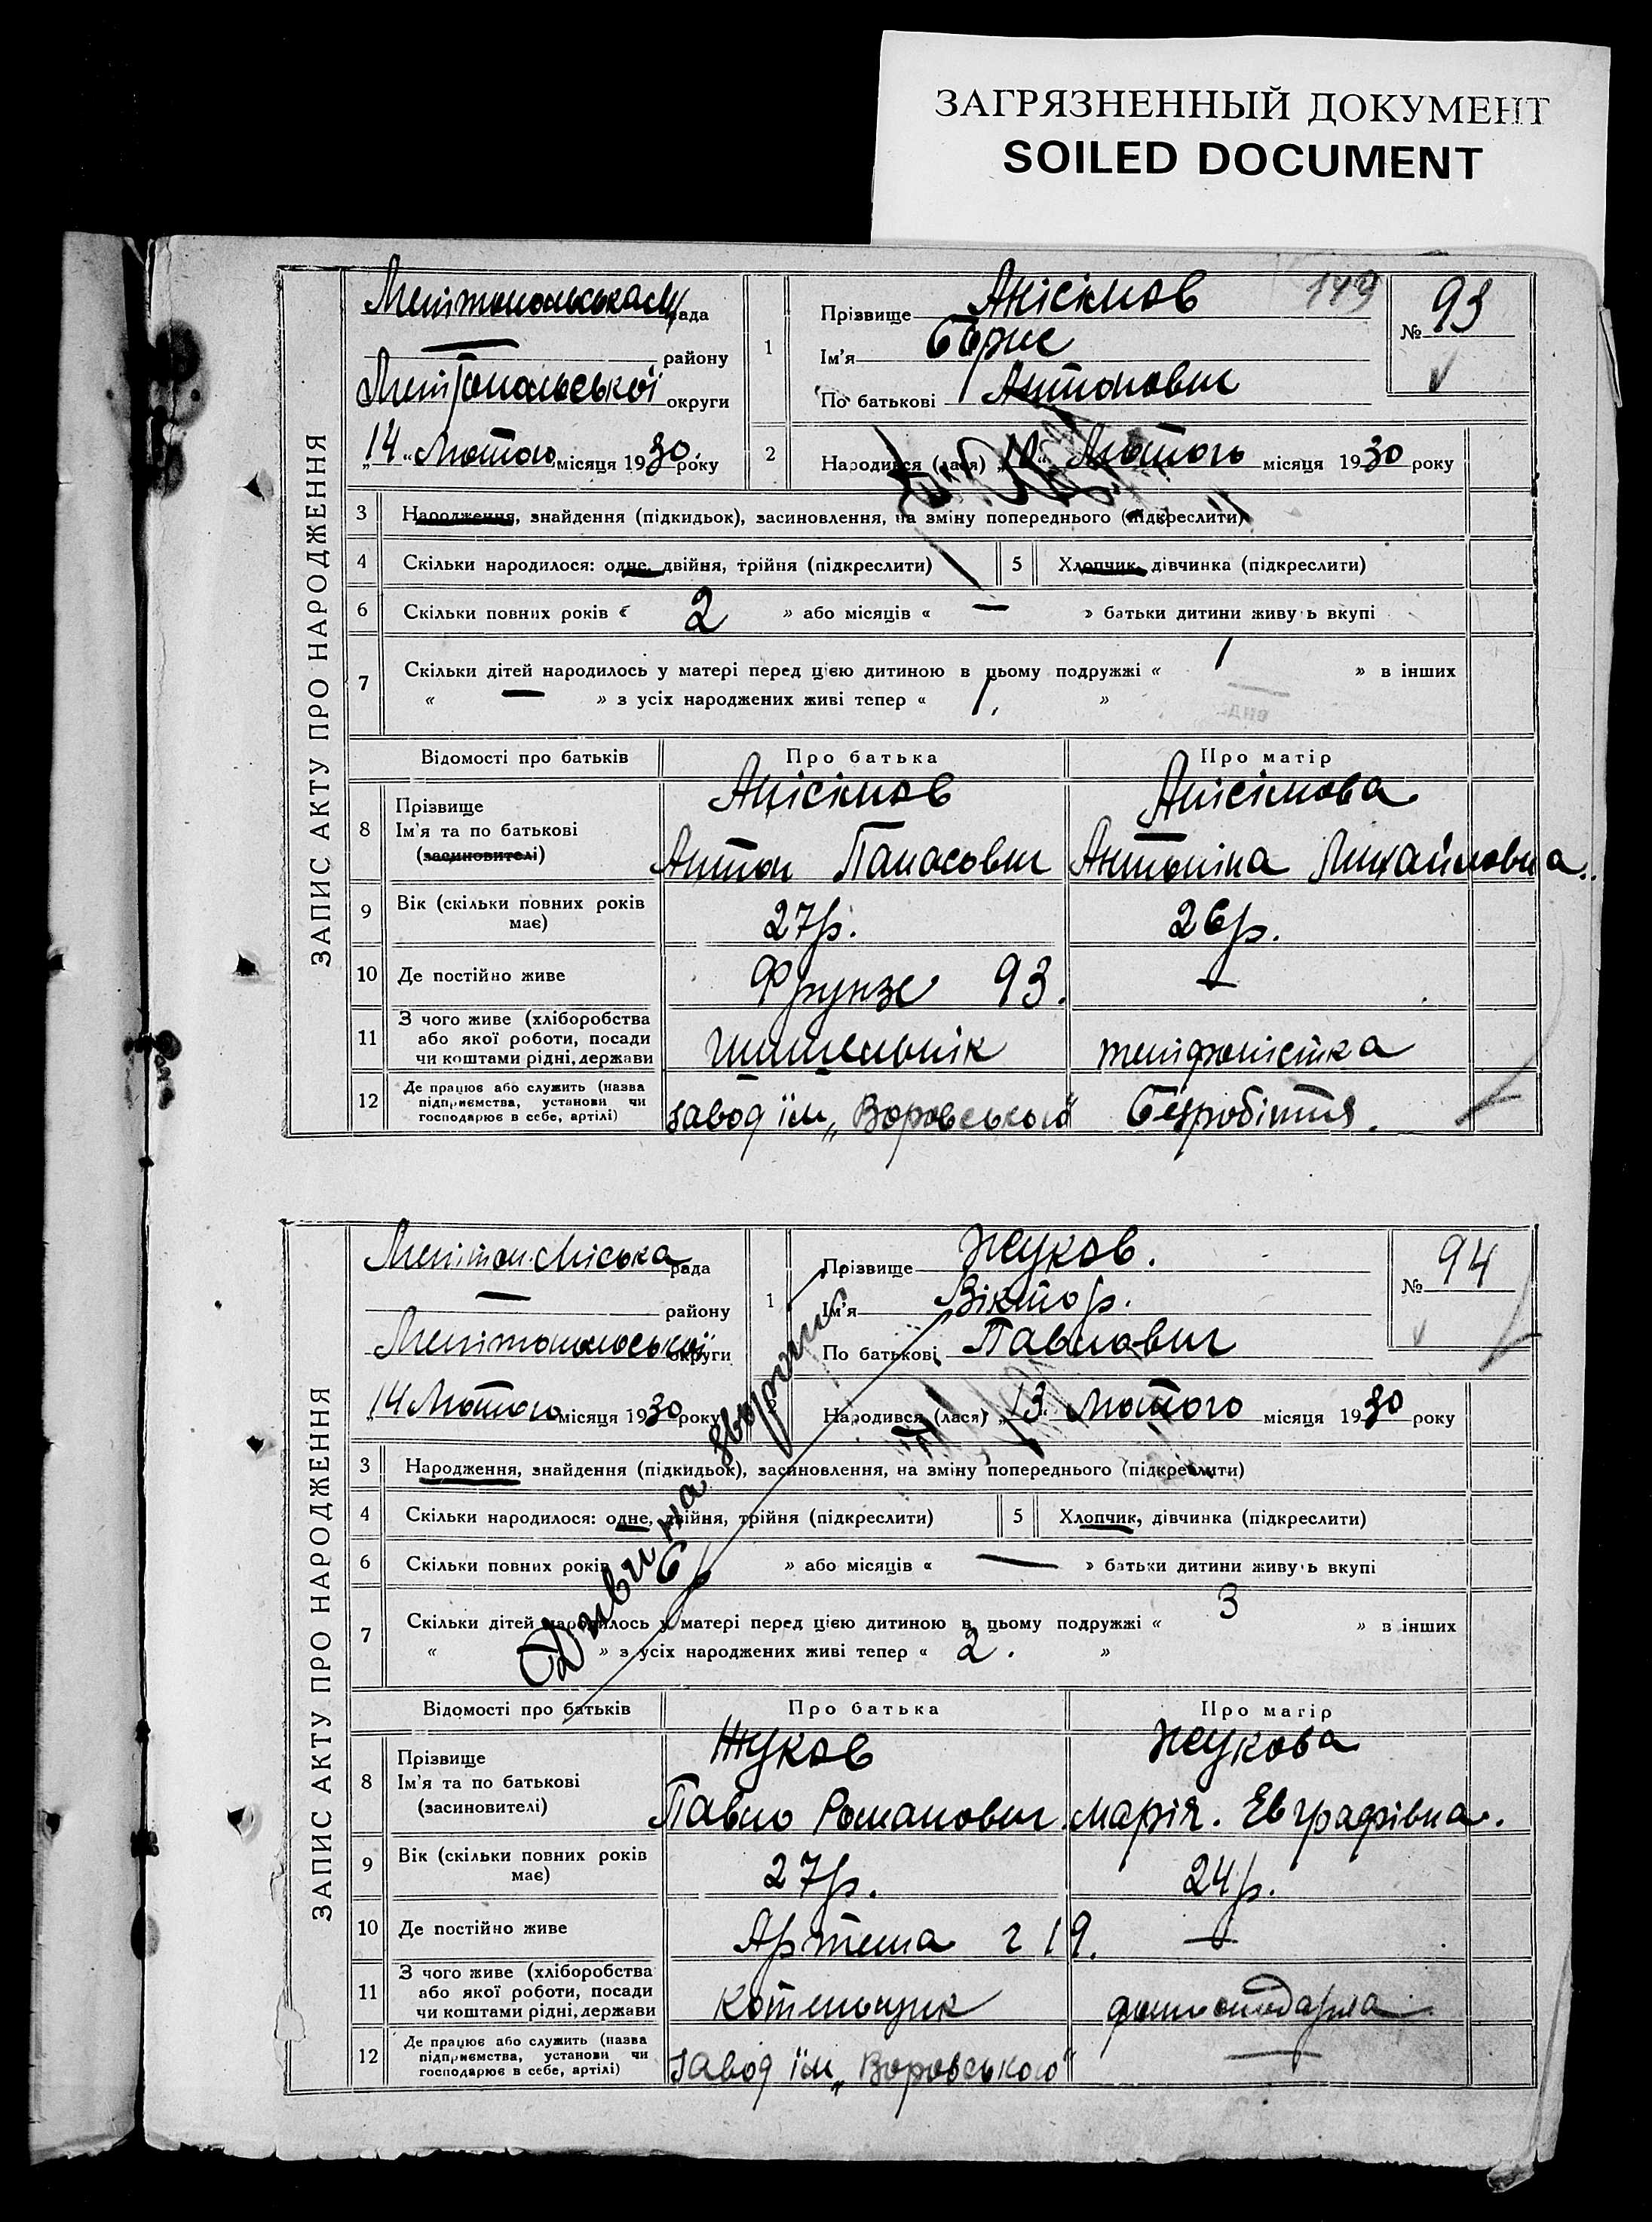 ЗАГРЯЗНЕННЫЙ ДОКУМЕНТ
SOILED DOCUMENT
149
ЗАПИС АКТУ ПРО НАРОДЖЕННЯ
Мелітопольська м/рада
— району
Мелітопольської округи
„14“ Лютого місяця 1930 року
1 Прізвище Анісімов
Ім'я Борис
По батькові Антонович
№ 93
2 Народився (лася) Лютого місяця 1930 року
3 Народження, знайдення (підкидьок), засиновлення, на зміну попереднього (підкреслити)
4 Скільки народилося: одне, двійня, трійня (підкреслити) 5 Хлопчик, дівчинка (підкреслити)
6 Скільки повних років « 2 » або місяців « — » батьки дитини живуть вкупі
7 Скільки дітей народилось у матері перед цією дитиною в цьому подружжі « 1 » в інших
« — » з усіх народжених живі тепер « 1, »
Відомості про батьків Про батька Про матір
8 Прізвище Анісімов Анісімова
Ім'я та по батькові Антон Панасович Антоніна Михайловна.
(засиновителі)
9 Вік (скільки повних років має) 27 р. 26 р.
10 Де постійно живе Фрунзе 93. —
11 З чого живе (хліборобства або якої роботи, посади чи коштами рідні, держави шишельнік теліфоністка
12 Де працює або служить (назва підприємства, установи чи господарює в себе, артілі) завод їм „Воровського“ безробітня.
ЗАПИС АКТУ ПРО НАРОДЖЕННЯ
Меліто п. міська рада
— району
Мелітопольської округи
„14 Лютого місяця 1930 року
1 Прізвище Жуков.
Ім'я Віктор.
По батькові Павлович
№ 94
2 Народився (лася) „13“ Лютого місяця 1930 року
3 Народження, знайдення (підкидьок), засиновлення, на зміну попереднього (підкреслити)
4 Скільки народилося: одне, двійня, трійня (підкреслити) 5 Хлопчик, дівчинка (підкреслити)
6 Скільки повних років 6 » або місяців « — » батьки дитини живуть вкупі
7 Скільки дітей народилось у матері перед цією дитиною в цьому подружжі « 3 » в інших
« » з усіх народжених живі тепер « 2. »
Дивись на звороті
Відомості про батьків Про батька Про матір
8 Прізвище Жуков Жукова
Ім'я та по батькові Павло Романович Марія. Евграфівна.
(засиновителі)
9 Вік (скільки повних років має) 27 р. 24 р.
10 Де постійно живе Артема 219. —
11 З чого живе (хліборобства або якої роботи, посади чи коштами рідні, держави котельщик домогосподарка
12 Де працює або служить (назва підприємства, установи чи господарює в себе, артілі) завод їм „Воровського“ —